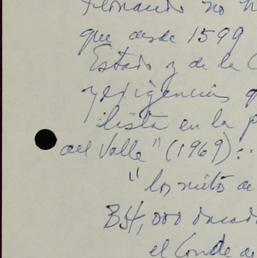 Fernando no
que desde 1599
Estado y de la C
y diligencias q
ilista en la p
del Valle" (1969):
"los nietos de
B$4,000 ducad
el Conde de